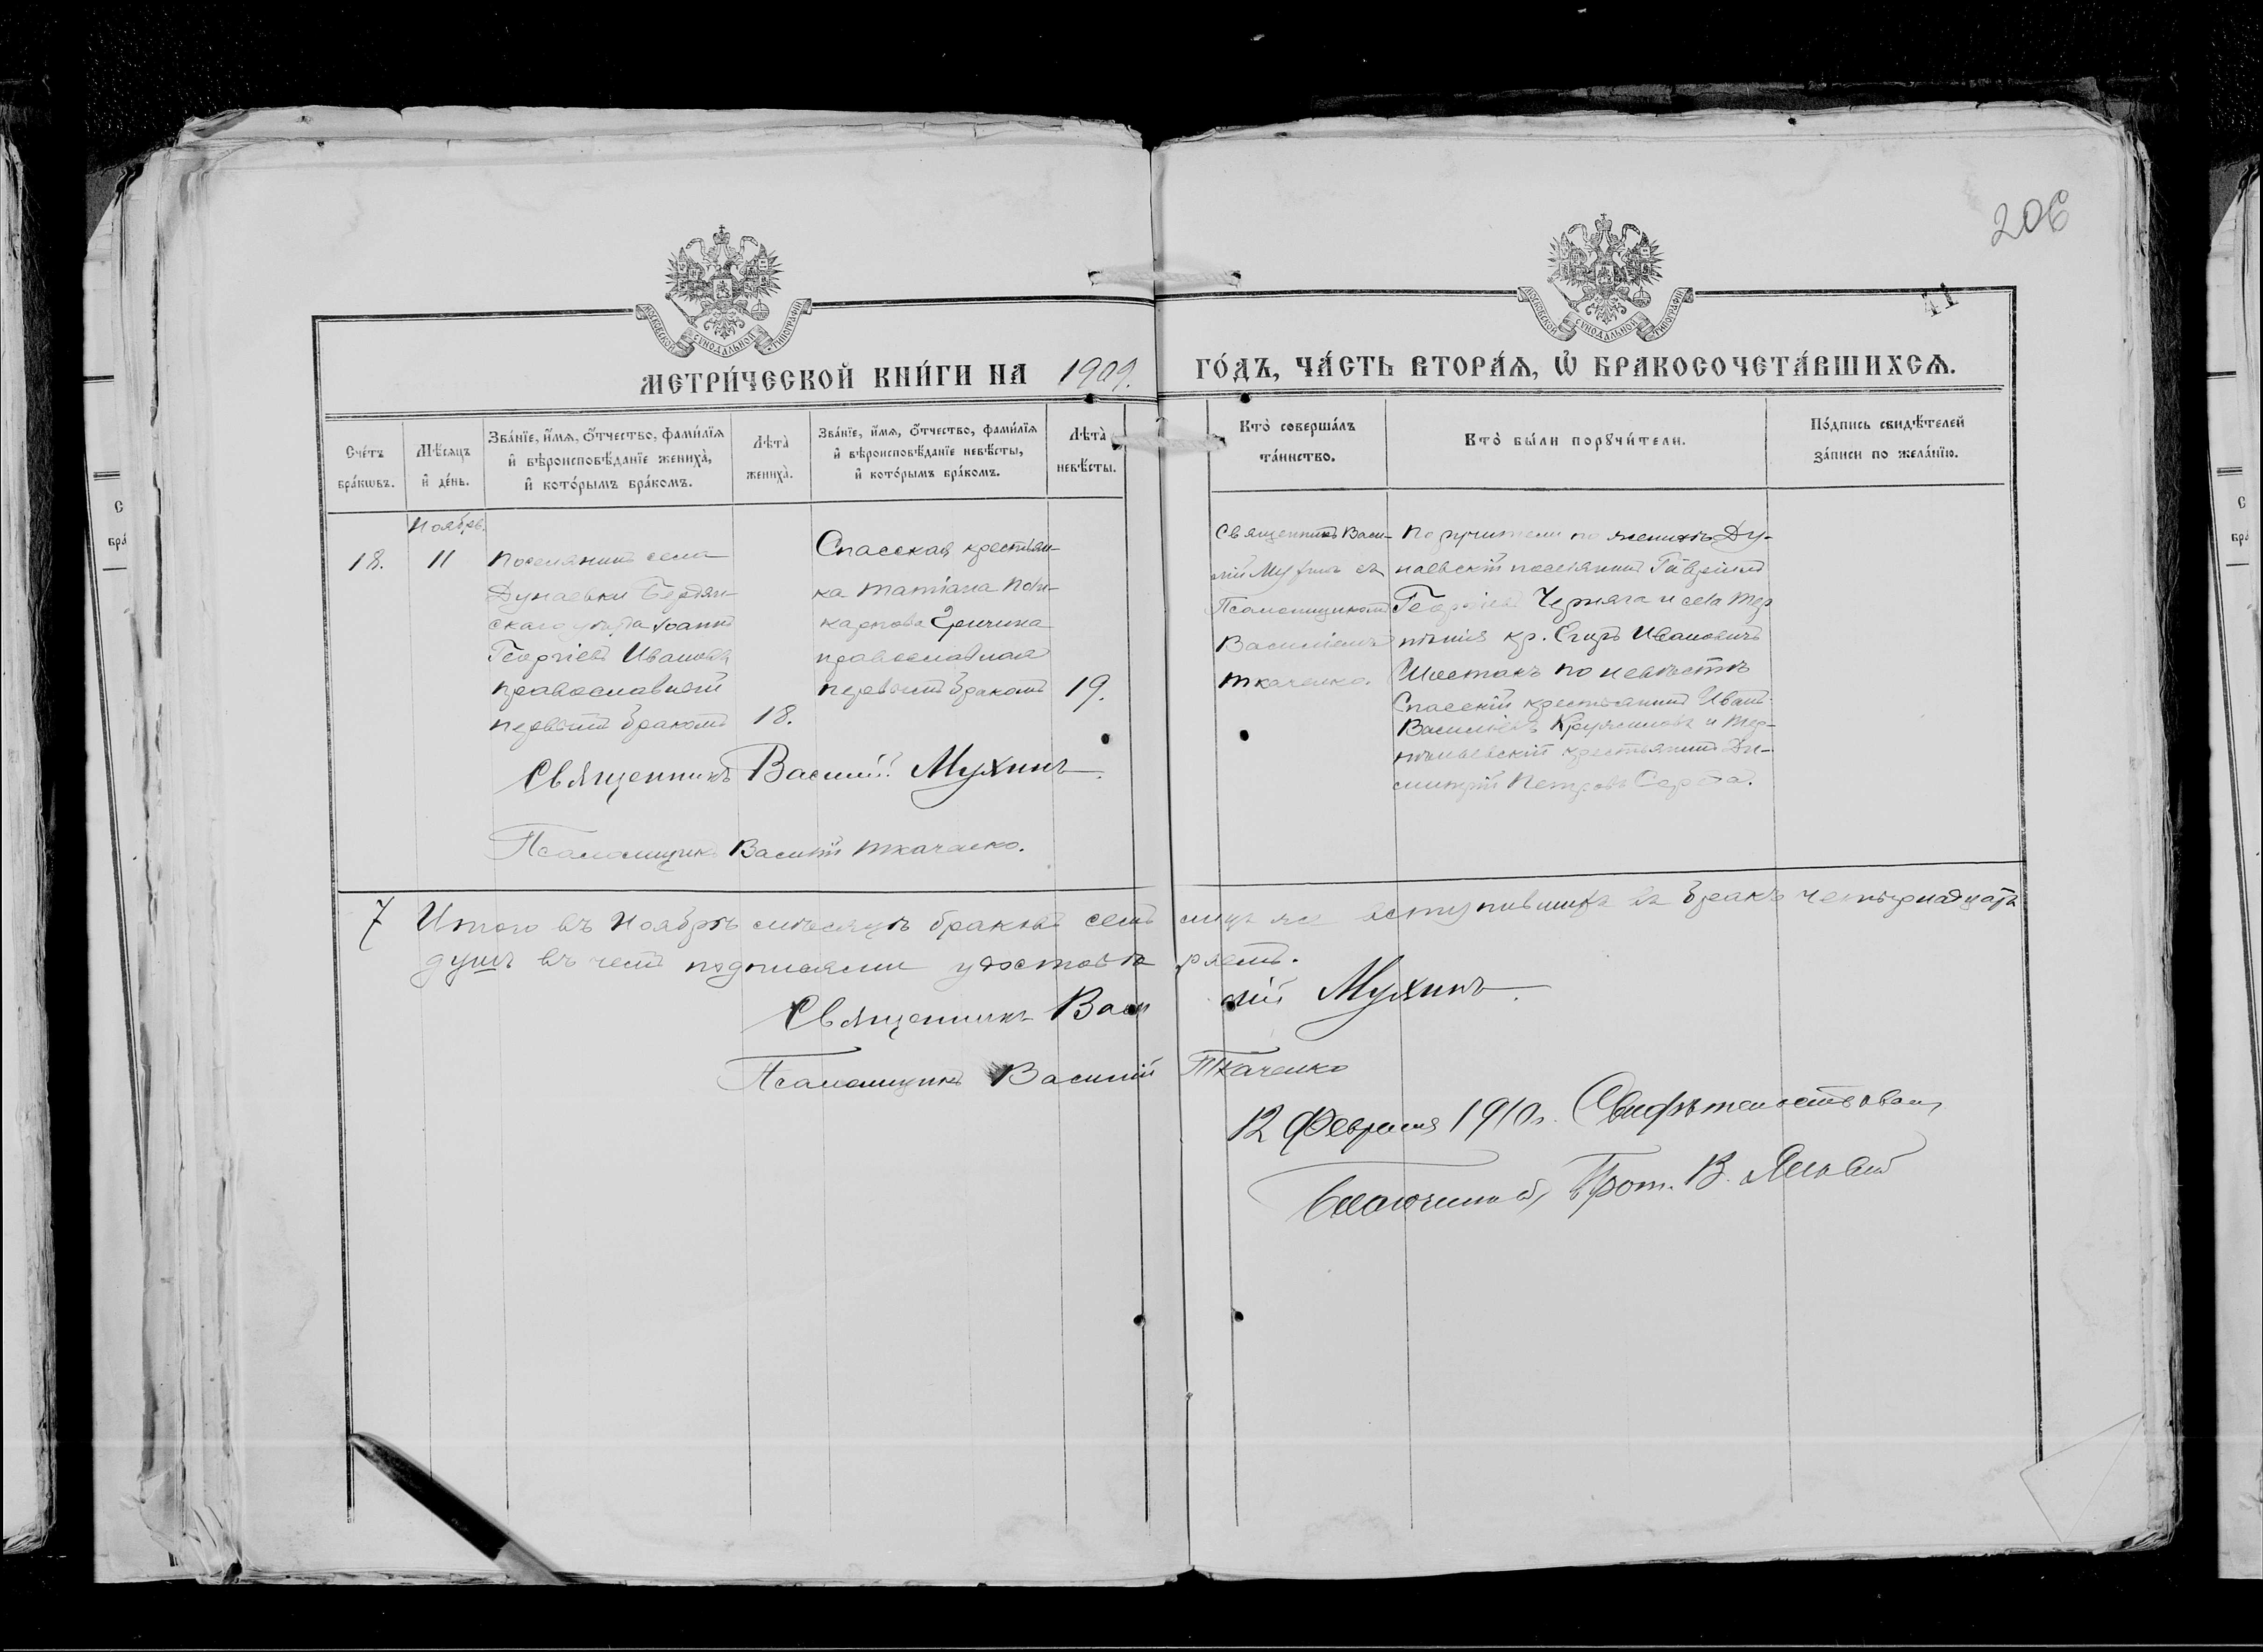 206
41
МОСКОВСКОЙ СѴНОДАЛЬНОЙ ТИПОГРАФІИ
МОСКОВСКОЙ СѴНОДАЛЬНОЙ ТИПОГРАФІИ
МЕТРИ́ЧЕСКОЙ КНИ́ГИ НА 1909. ГО́ДЪ, ЧА́СТЬ ВТОРА́Ѧ, Ѡ҆ БРАКОСОЧЕТА́ВШИХСѦ.
Сче́тъ бра́кѡвъ.
Мѣ́сяцъ и҆ де́нь.
Зва́нїе, и҆́мѧ, ѻ҆́тчество, фами́лїѧ и҆ вѣроисповѣ́данїе жениха̀, и҆ кото́рымъ бра́комъ.
Лѣта̀ жениха̀.
Зва́нїе, и҆́мѧ, ѻ҆́тчество, фами́лїѧ и҆ вѣроисповѣ́данїе невѣ́сты, и҆ кото́рымъ бра́комъ.
Лѣта̀ невѣ́сты.
Кто̀ соверша́лъ та́инство.
Кто̀ бы́ли порꙋчи́тели.
По́дпись свидѣ́телей за́писи по жела́нїю.
Ноябрь.
18.
11
Поселянинъ села
Дунаевки Бердян-
скаго уѣзда Іоаннъ
Георгіевъ Ивановъ
православный
первымъ бракомъ
18.
Спасская крестьян-
ка Татіана Поли-
карпова
православная
первымъ бракомъ
19.
Священникъ Васи-
лій Мухинъ съ
Псаломщикомъ
Василіемъ
Ткаченко.
Поручители по женихѣ Ду-
наевскій поселянинъ Гавріилъ
Георгіевъ Черняга и села Тер
пѣнія кр. Егоръ Ивановичъ
Шостакъ по невѣстѣ
Спасскій крестьянинъ Иванъ
Васильевъ и Тер-
пѣньевскій крестьянинъ Ди-
митрій Петровъ Серёга.
Священникъ Василій Мухинъ.
Псаломщикъ Василій Ткаченко.
7 Итого въ Ноябрѣ мѣсяцѣ браковъ семь лицъ же вступившихъ въ бракъ четырнадцать
душъ въ чемъ подписями удостовѣряемъ.
Священникъ Василій Мухинъ.
Псаломщикъ Василій Ткаченко
12 Февраля 1910 г. Свидѣтельствовалъ
Благочинный, Прот. В.